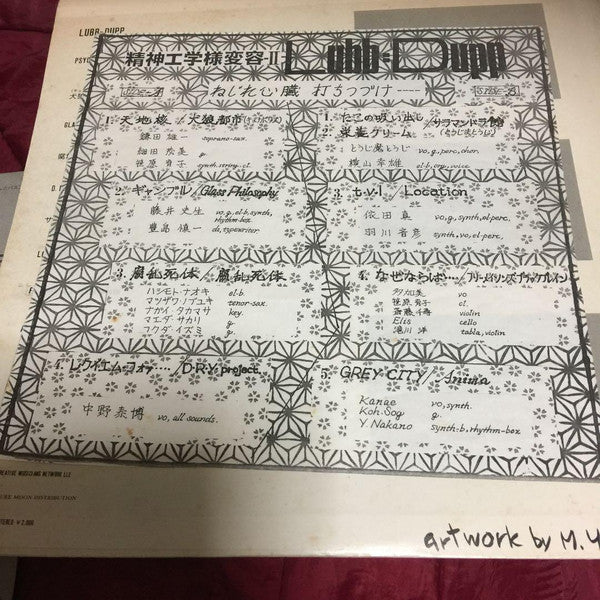 LUBB-DUPP
精神工学様変容-II Lubb=Dupp
ねじれ心臓 打ちつづけ-----
1. 天地核/犬狼都市
鎌田雄一 soprano-sax.
細田茂美 g.
笹原貞子 synth, string, cl.
2. ギャンブル/Glass Philosophy
藤井史生 vo, g, el-b, synth, rhythm-box
豊島慎一 ds, typewriter.
3. 腐乱死体/腐乱死体
ハシモト・ナオキ el-b.
マツザワ・ノブユキ tenor-sax.
ナカイ・タカマサ key.
マエダ・サカリ g.
フクダ・イズミ g.
4. レクイエム・フォア・・・・/D.R.Y. project.
中野泰博 vo, all sounds.
1. たこの吸い出し/サラマンドラ館
2. 巣雀クリーム
とうじ魔とうじ vo, g, perc, chor.
横山幸雄 el-b, org, voice.
3. t-v-l/Location
依田真 vo, g, synth, el-perc.
羽川省彦 synth, vo, el-perc.
4. なぜならば・・・・/フリーメイソンズブラックルイン
vo
笹原貞子 cl.
violin
cello
滝川洋 tabla, violin
5. GREY CITY/Anima
Kanae vo, synth.
Koh-Sog g.
Y. Nakano synth-b, rhythm-box
URE MOON DISTRIBUTION
artwork by M.